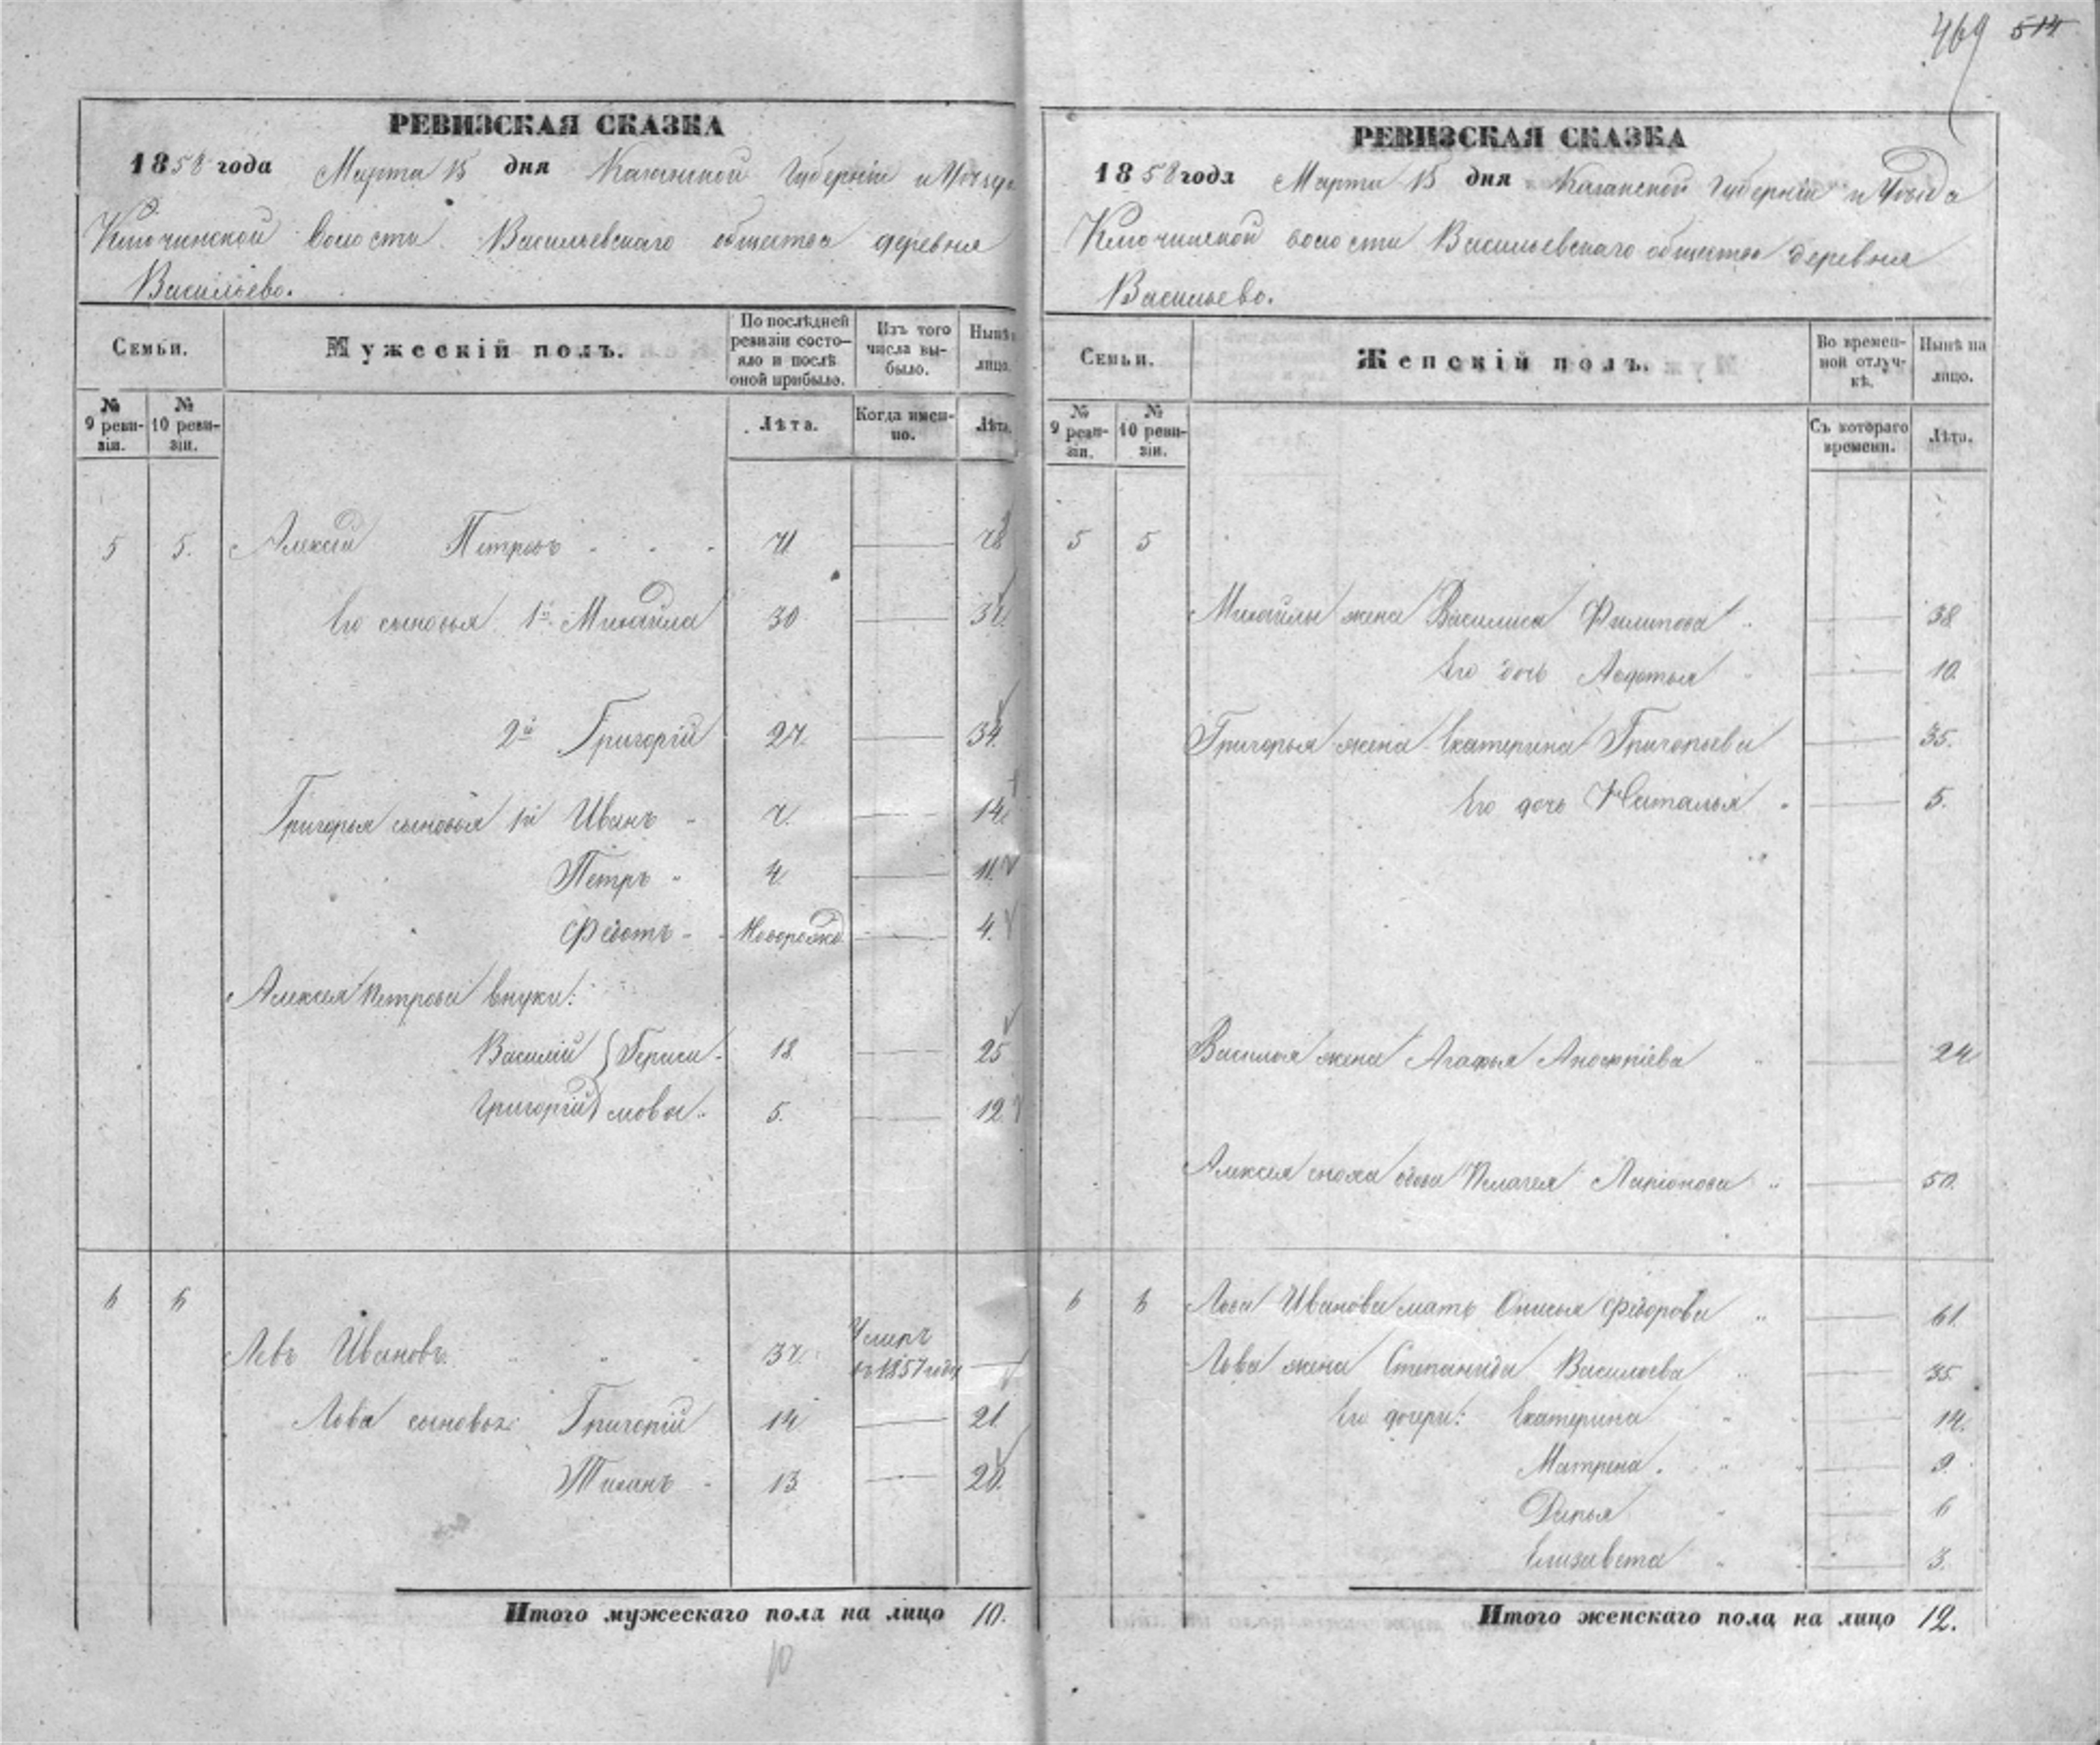 469 514
РЕВИЗСКАЯ СКАЗКА
1858 года Марта 15 дня Казанской Губерніи и Уѣзда
Ключинской волости Васильевскаго общества деревня
Васильево.
Семьи.
Мужескій полъ.
По послѣдней ревизіи состояло и послѣ оной прибыло.
Изъ того числа выбыло.
Нынѣ лицо.
№ 9 ревизіи.
№ 10 ревизіи.
Лѣта.
Когда именно.
Лѣта.
5 5. Алексѣй Петровъ 71 78
Его сыновья 1й Михайла 30 37
2й Григорій 27. 34.
Григорья сыновья 1й Иванъ 7. 14
Петръ 4. 11.
Федотъ Новорожд. 4.
Алексѣя Петрова внуки:
Василій } Гераси- 18. 25
Григорій } мовы. 5. 12
6 6
Левъ Ивановъ 37. Умеръ въ 1857 году
Льва сыновья: Григорій 14 21.
Тиханъ 13. 20.
Итого мужескаго пола на лицо 10.
10
РЕВИЗСКАЯ СКАЗКА
1858 года Марта 15 дня Казанской Губерніи и Уѣзда
Ключинской волости Васильевскаго общества деревня
Васильево.
Семьи.
Женскій полъ.
Во временной отлучкѣ.
Нынѣ на лицо.
№ 9 ревизіи.
№ 10 ревизіи.
Съ котораго времени.
Лѣта.
5 5
Михайлы жена Василиса Филипова 38
Его дочь Авдотья 10.
Григорья жена Екатерина Григорьева 35.
Его дочь Наталья 5.
Василья жена Агафья 24
Алексѣя сноха вдова Пелагея Ларіонова 50.
6 6 Льва Иванова мать Онисья Федорова 61.
Льва жена Степанида Васильева 35.
Его дочери: Екатерина 14.
Матрена. 9.
Дарья 6
Елизавета 3.
Итого женскаго пола на лицо 12.